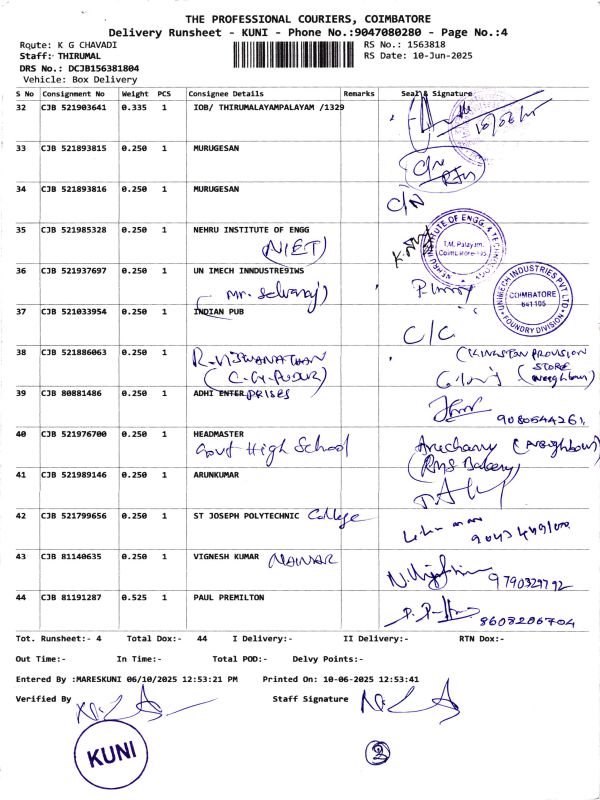 THE PROFESSIONAL COURIERS, COIMBATORE
Delivery Runsheet - KUNI - Phone No.:9047080280 - Page No.:4
Route: K G CHAVADI
RS No.: 1563818
Staff: THIRUMAL
RS Date: 10-Jun-2025
DRS No.: DCJB156381804
Vehicle: Box Delivery
S No Consignment No Weight PCS Consignee Details Remarks Seal & Signature
32 CJB 521903641 0.335 1 IOB/ THIRUMALAYAMPALAYAM /1329
33 CJB 521893815 0.250 1 MURUGESAN C/N
34 CJB 521893816 0.250 1 MURUGESAN C/N
35 CJB 521985328 0.250 1 NEHRU INSTITUTE OF ENGG
(NIET)
NEHRU INSTITUTE OF ENGG. & TECHNOLOGY
T.M. Palayam,
Coimbatore-105
36 CJB 521937697 0.250 1 UN IMECH INNDUSTRE9IWS
(Mr. Selvaraj)
UNIMECH INDUSTRIES PVT LTD
COIMBATORE
641 105
FOUNDRY DIVISION
37 CJB 521033954 0.250 1 INDIAN PUB C/C
38 CJB 521886063 0.250 1 R. VISWANATHAN
(C.G. PUDUR)
(KINGSTON PROVISION
STORE
(Neighbour)
39 CJB 80881486 0.250 1 ADHI ENTERPRISES
9080544261
40 CJB 521976700 0.250 1 HEADMASTER
Govt High School
(Neighbour)
(RMS Bakery)
41 CJB 521989146 0.250 1 ARUNKUMAR
42 CJB 521799656 0.250 1 ST JOSEPH POLYTECHNIC College
43 CJB 81140635 0.250 1 VIGNESH KUMAR
9790329792
44 CJB 81191287 0.525 1 PAUL PREMILTON
8608206704
Tot. Runsheet:- 4 Total Dox:- 44 I Delivery:- II Delivery:- RTN Dox:-
Out Time:- In Time:- Total POD:- Delvy Points:-
Entered By :MARESKUNI 06/10/2025 12:53:21 PM Printed On: 10-06-2025 12:53:41
Verified By Staff Signature
KUNI
2